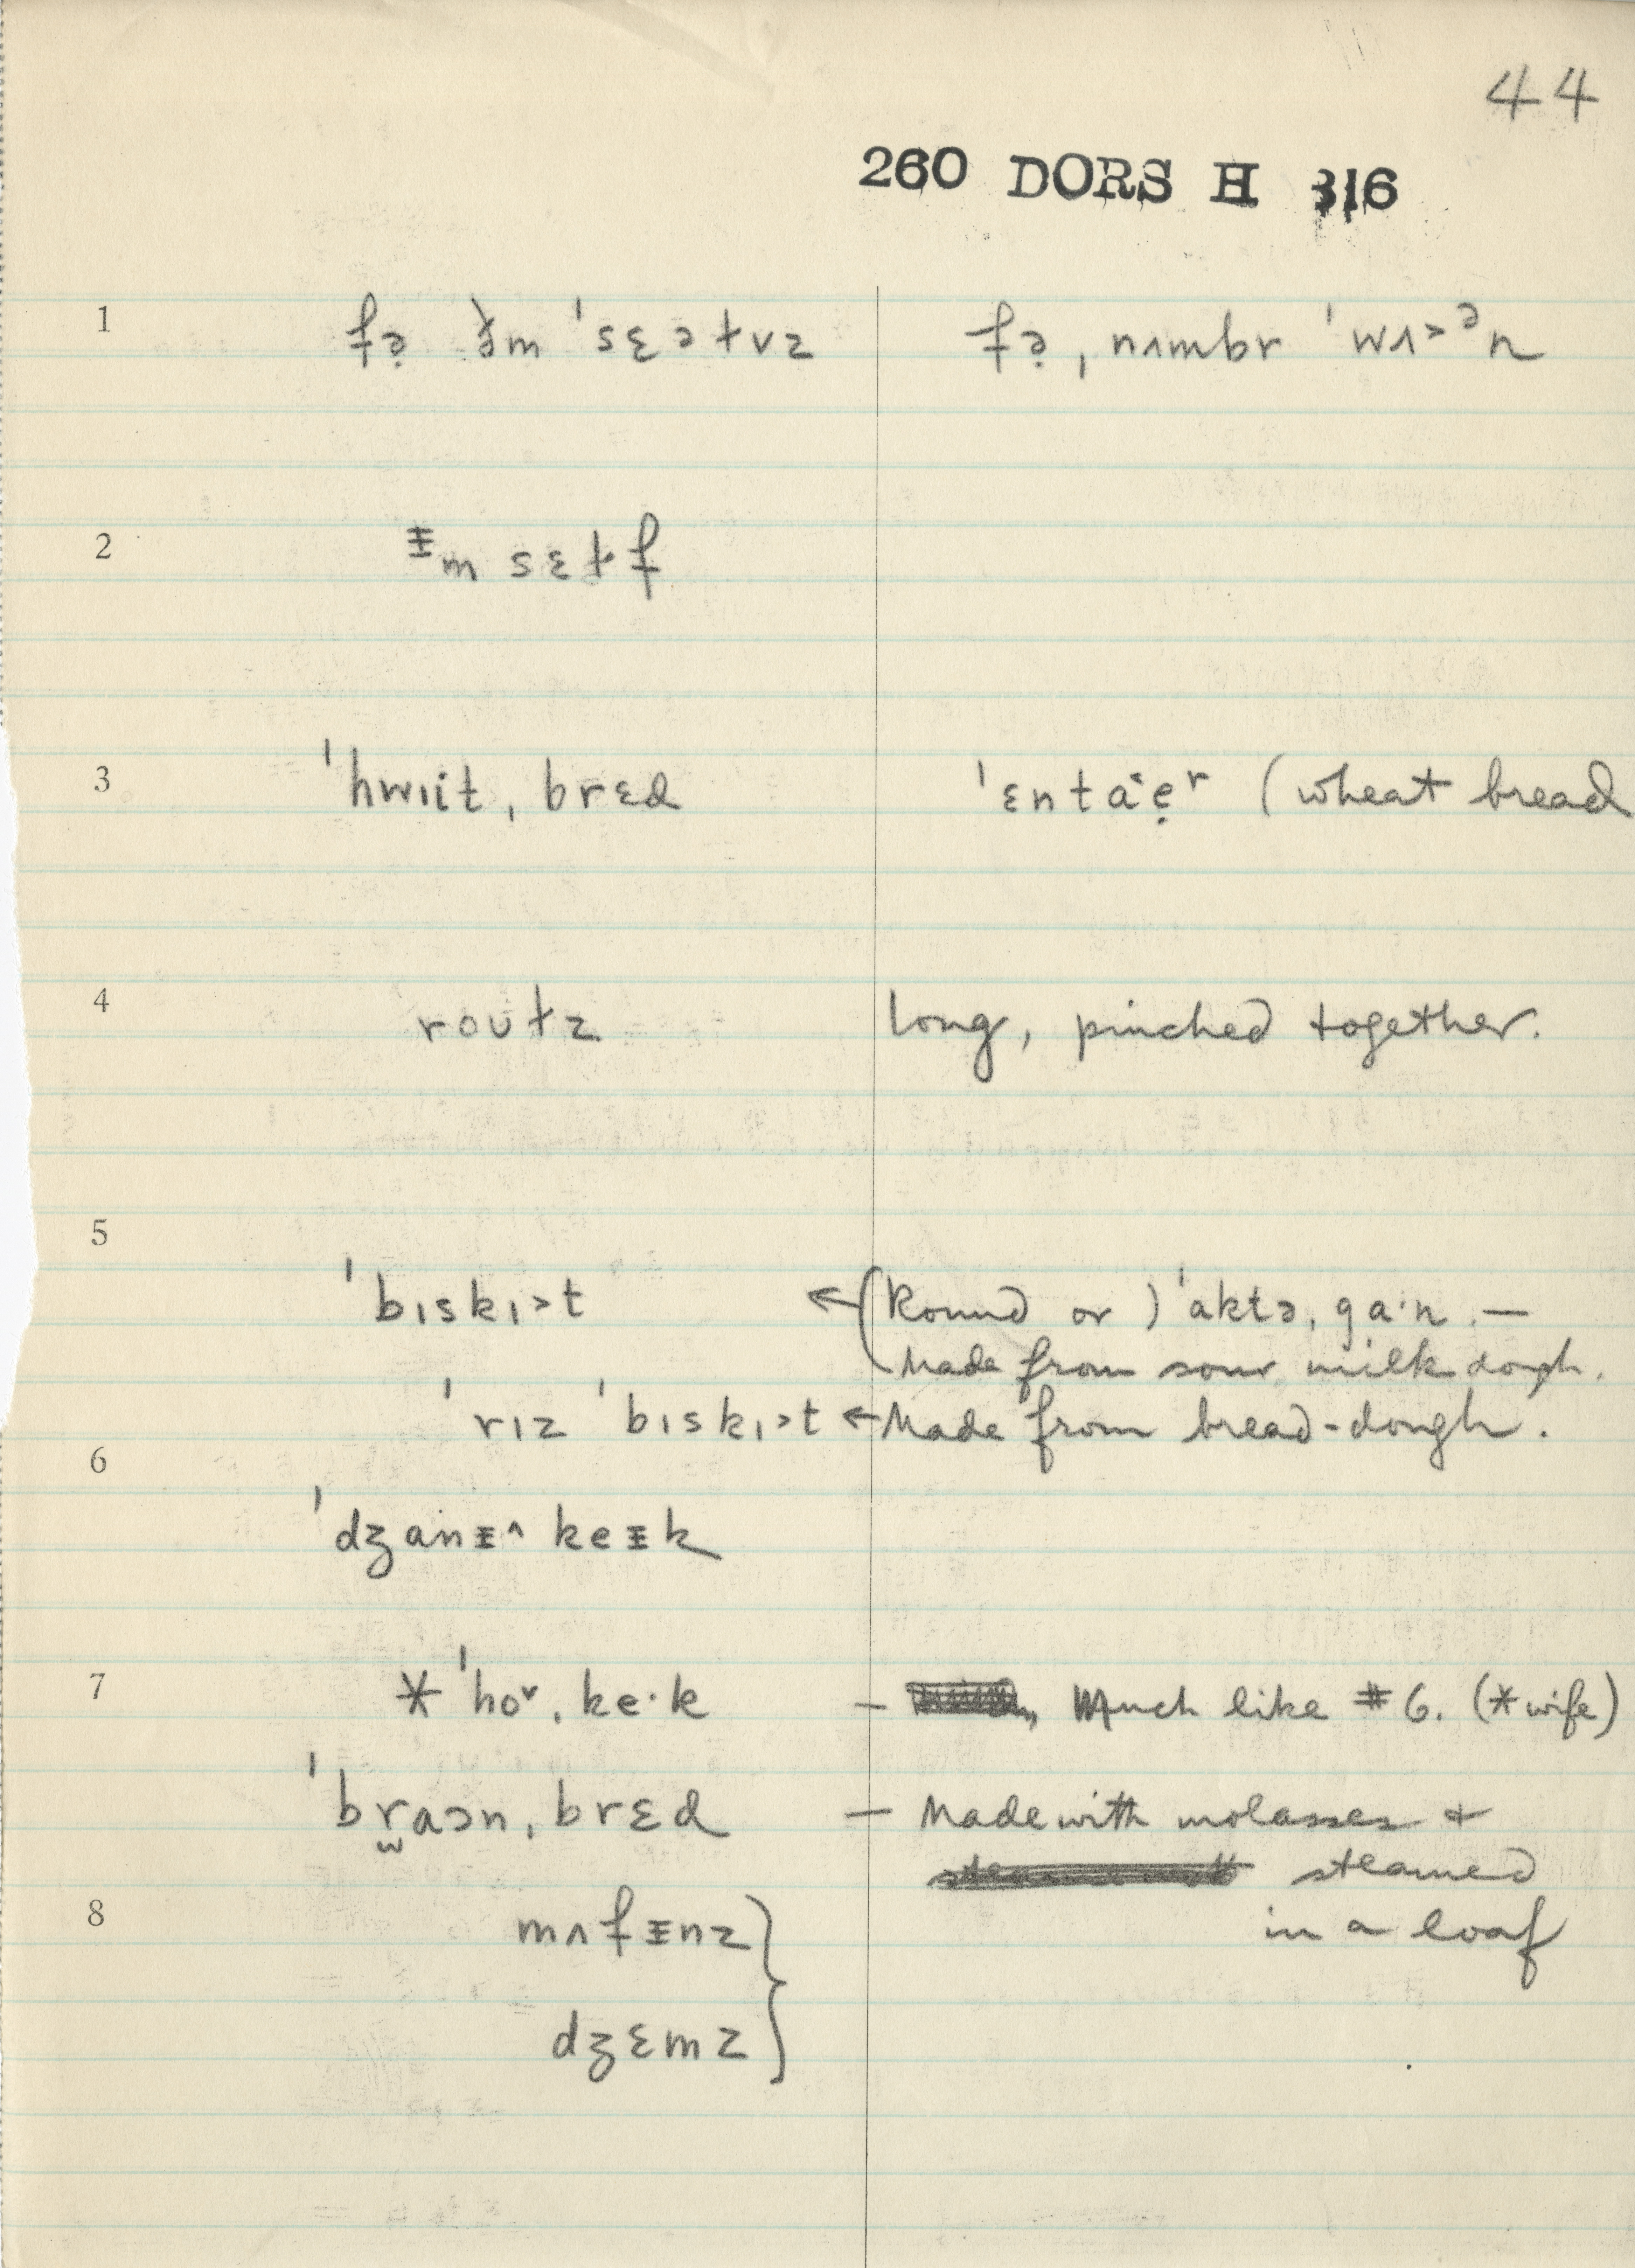 44
260 DORS H 316
1 fə̣ ðm ˈsɛəɫvz fə̣ , nʌmbr ˈwʌ>ᵊn
2 ᵻm sɛɫf
3 ˈhwıit , brɛd ˈɛntaˆẹʳ (wheat bread
4 roʊɫz long, pinched together.
5
ˈbıskı>t ← (Round or ) ˈaktə, ga·n. —
Made from sour milk dough.
ˈrız ˈbıskı>t ← Made from bread-dough.
6
ˈdʒanᵻ^ keᵻk
7 * ˈhoˇ, ke·k — Much like #6. (*wife)
ˈbr̫aɔn, brɛd — Made with molasses +
steamed
8 mʌfᵻnz } in a loaf
dʒɛmz }